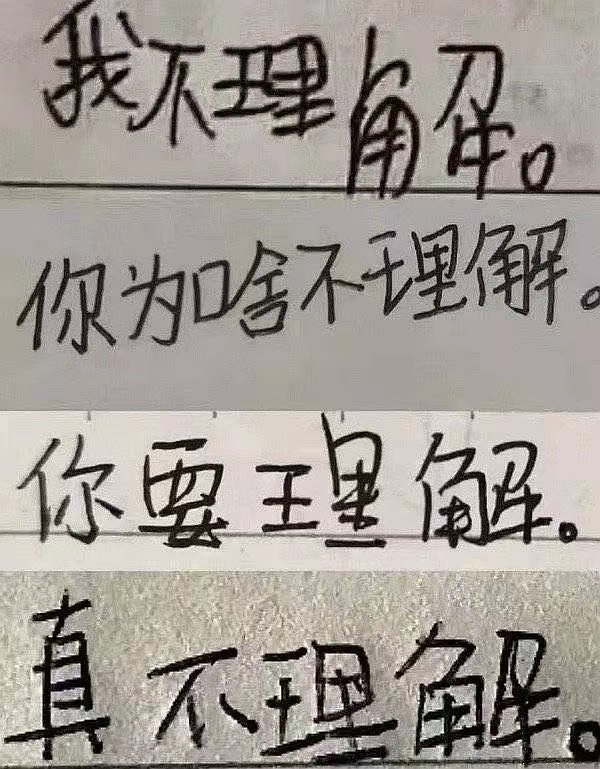 我不理解。
你为啥不理解。
你要理解。
真不理解。